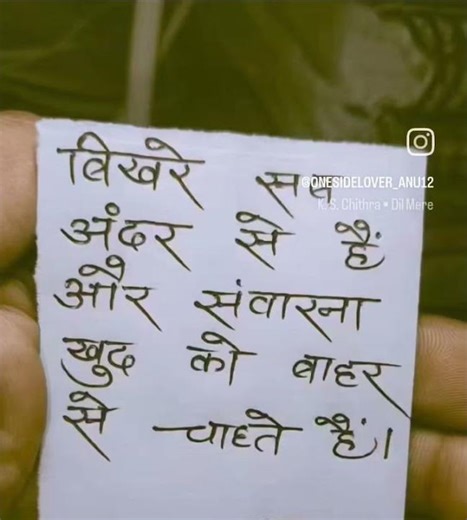 बिखरे सब
@ONESIDELOVER_ANU12
K. S. Chithra • Dil Mere
अंदर से हैं
और संवारना
खुद को बाहर
से चाहते हैं।